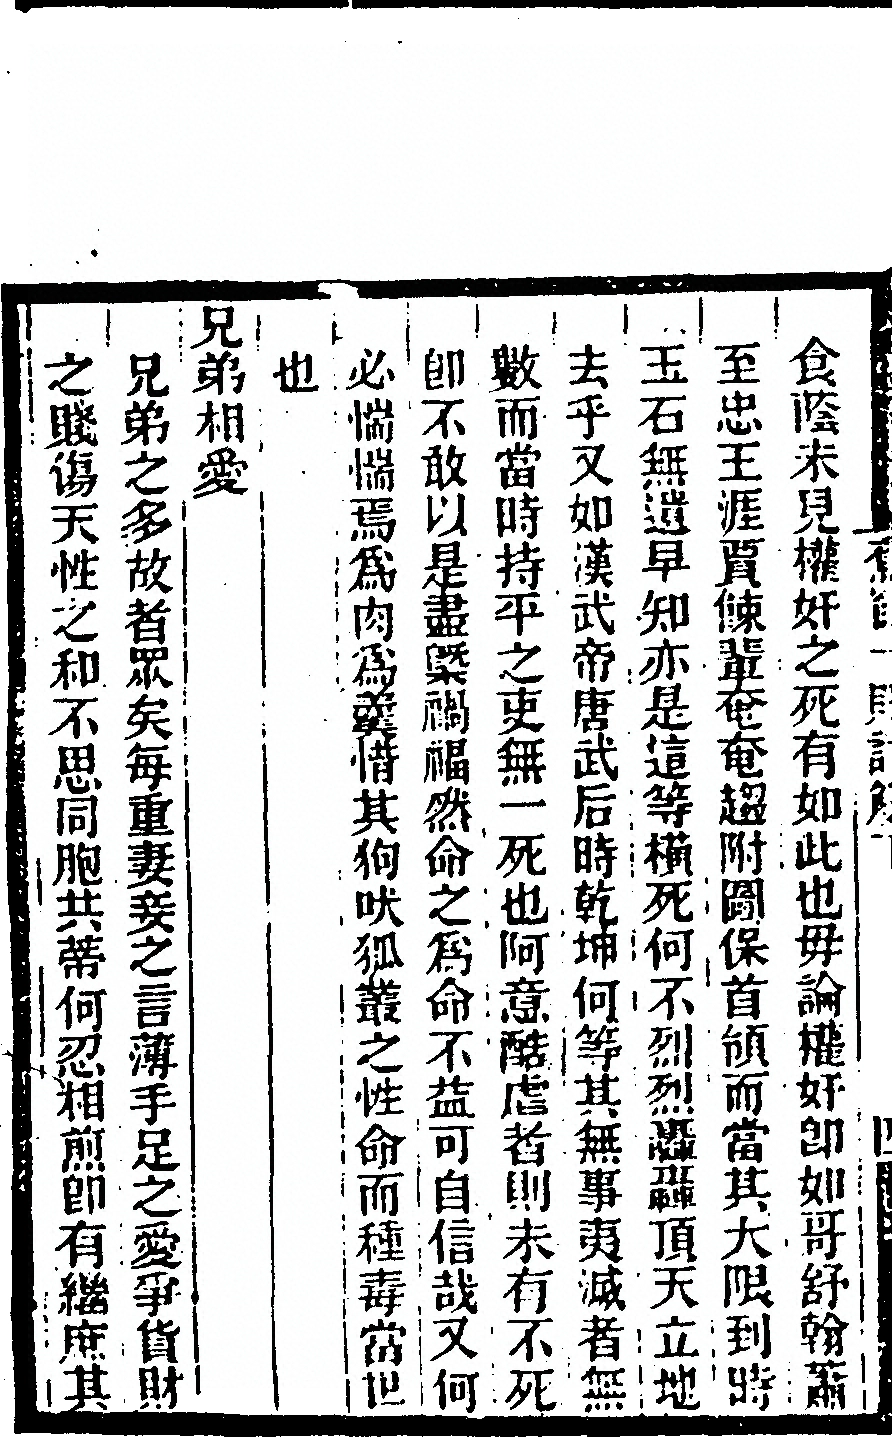 食蔭未見權奸之死有如此也毋論權奸卽如哥舒翰蕭
至忠王涯賈餗輩奄奄趨附圖保首領而當其大限到時
玉石無遺早知亦是這等橫死何不烈烈轟轟頂天立地
去乎又如漢武帝唐武后時乾坤何等其無事夷滅者無
數而當時持平之吏無一死也阿意酷虐者則未有不死
卽不敢以是盡槩禍福然命之爲命不益可自信哉又何
必惴惴焉爲肉爲羹惜其狗吠狐叢之性命而種毒當世
也
兄弟相愛
兄弟之多故者眾矣每重妻妾之言薄手足之愛爭貨財
之賤傷天性之和不思同胞共蒂何忍相煎卽有繼庶其